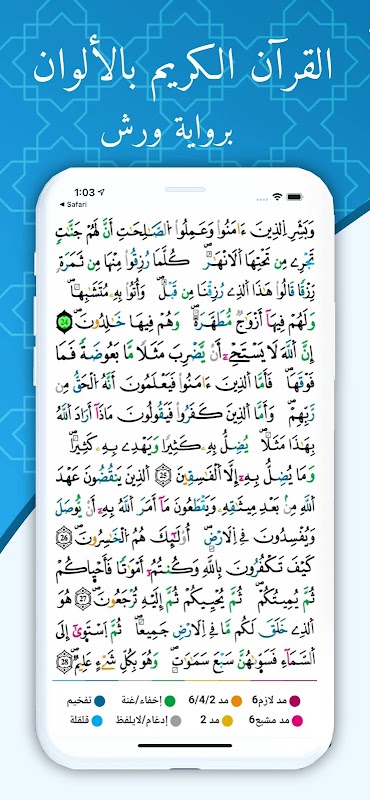 القرآن الكريم بالألوان
برواية ورش
1:03
Safari
وَبَشِّرِ اِ۬لذِينَ ءَامَنُوا۟ وَعَمِلُوا۟ اُ۬لصَّٰلِحَٰتِ أَنَّ لَهُمْ جَنَّٰتٖ
تَجْرِے مِن تَحْتِهَا اَ۬لَانْهَٰرُۖ كُلَّمَا رُزِقُوا۟ مِنْهَا مِن ثَمَرَةٖ
رِّزْقاٗ قَالُوا۟ هَٰذَا اَ۬لذِے رُزِقْنَا مِن قَبْلُۖ وَأُتُوا۟ بِهِۦ مُتَشَٰبِهاٗۖ
وَلَهُمْ فِيهَآ أَزْوَٰجٞ مُّطَهَّرَةٞۖ وَهُمْ فِيهَا خَٰلِدُونَۖ 24
إِنَّ اَ۬للَّهَ لَا يَسْتَحْيِۦٓ أَنْ يَّضْرِبَ مَثَلاٗ مَّا بَعُوضَةٗ فَمَا
فَوْقَهَاۖ فَأَمَّا اَ۬لذِينَ ءَامَنُوا۟ فَيَعْلَمُونَ أَنَّهُ اُ۬لْحَقُّ مِن
رَّبِّهِمْۖ وَأَمَّا اَ۬لذِينَ كَفَرُوا۟ فَيَقُولُونَ مَاذَآ أَرَادَ اَ۬للَّهُ
بِهَٰذَا مَثَلاٗۖ يُضِلُّ بِهِۦ كَثِيراٗ وَيَهْدِے بِهِۦ كَثِيراٗۖ
وَمَا يُضِلُّ بِهِۦٓ إِلَّا اَ۬لْفَٰسِقِينَۖ 25 اَ۬لذِينَ يَنقُضُونَ عَهْدَ
اَ۬للَّهِ مِنۢ بَعْدِ مِيثَٰقِهِۦ وَيَقْطَعُونَ مَآ أَمَرَ اَ۬للَّهُ بِهِۦٓ أَنْ يُّوصَلَ
وَيُفْسِدُونَ فِے اِ۬لَارْضِۖ أُو۟لَٰٓئِكَ هُمُ اُ۬لْخَٰسِرُونَۖ 26
كَيْفَ تَكْفُرُونَ بِاللَّهِ وَكُنتُمُۥٓ أَمْوَٰتاٗ فَأَحْيَٰكُمْ
ثُمَّ يُمِيتُكُمْۖ ثُمَّ يُحْيِيكُمْ ثُمَّ إِلَيْهِ تُرْجَعُونَۖ 27 هُوَ
اَ۬لذِے خَلَقَ لَكُم مَّا فِے اِ۬لَارْضِ جَمِيعاٗۖ ثُمَّ اَ۪سْتَوَىٰٓ إِلَى
اَ۬لسَّمَآءِ فَسَوَّىٰهُنَّ سَبْعَ سَمَٰوَٰتٖۖ وَهُوَ بِكُلِّ شَےْءٍ عَلِيمٞۖ 28
مد لازم6 مد 6/4/2 إخفاء/غنة تفخيم
مد مشبع6 مد 2 إدغام/لايلفظ قلقلة